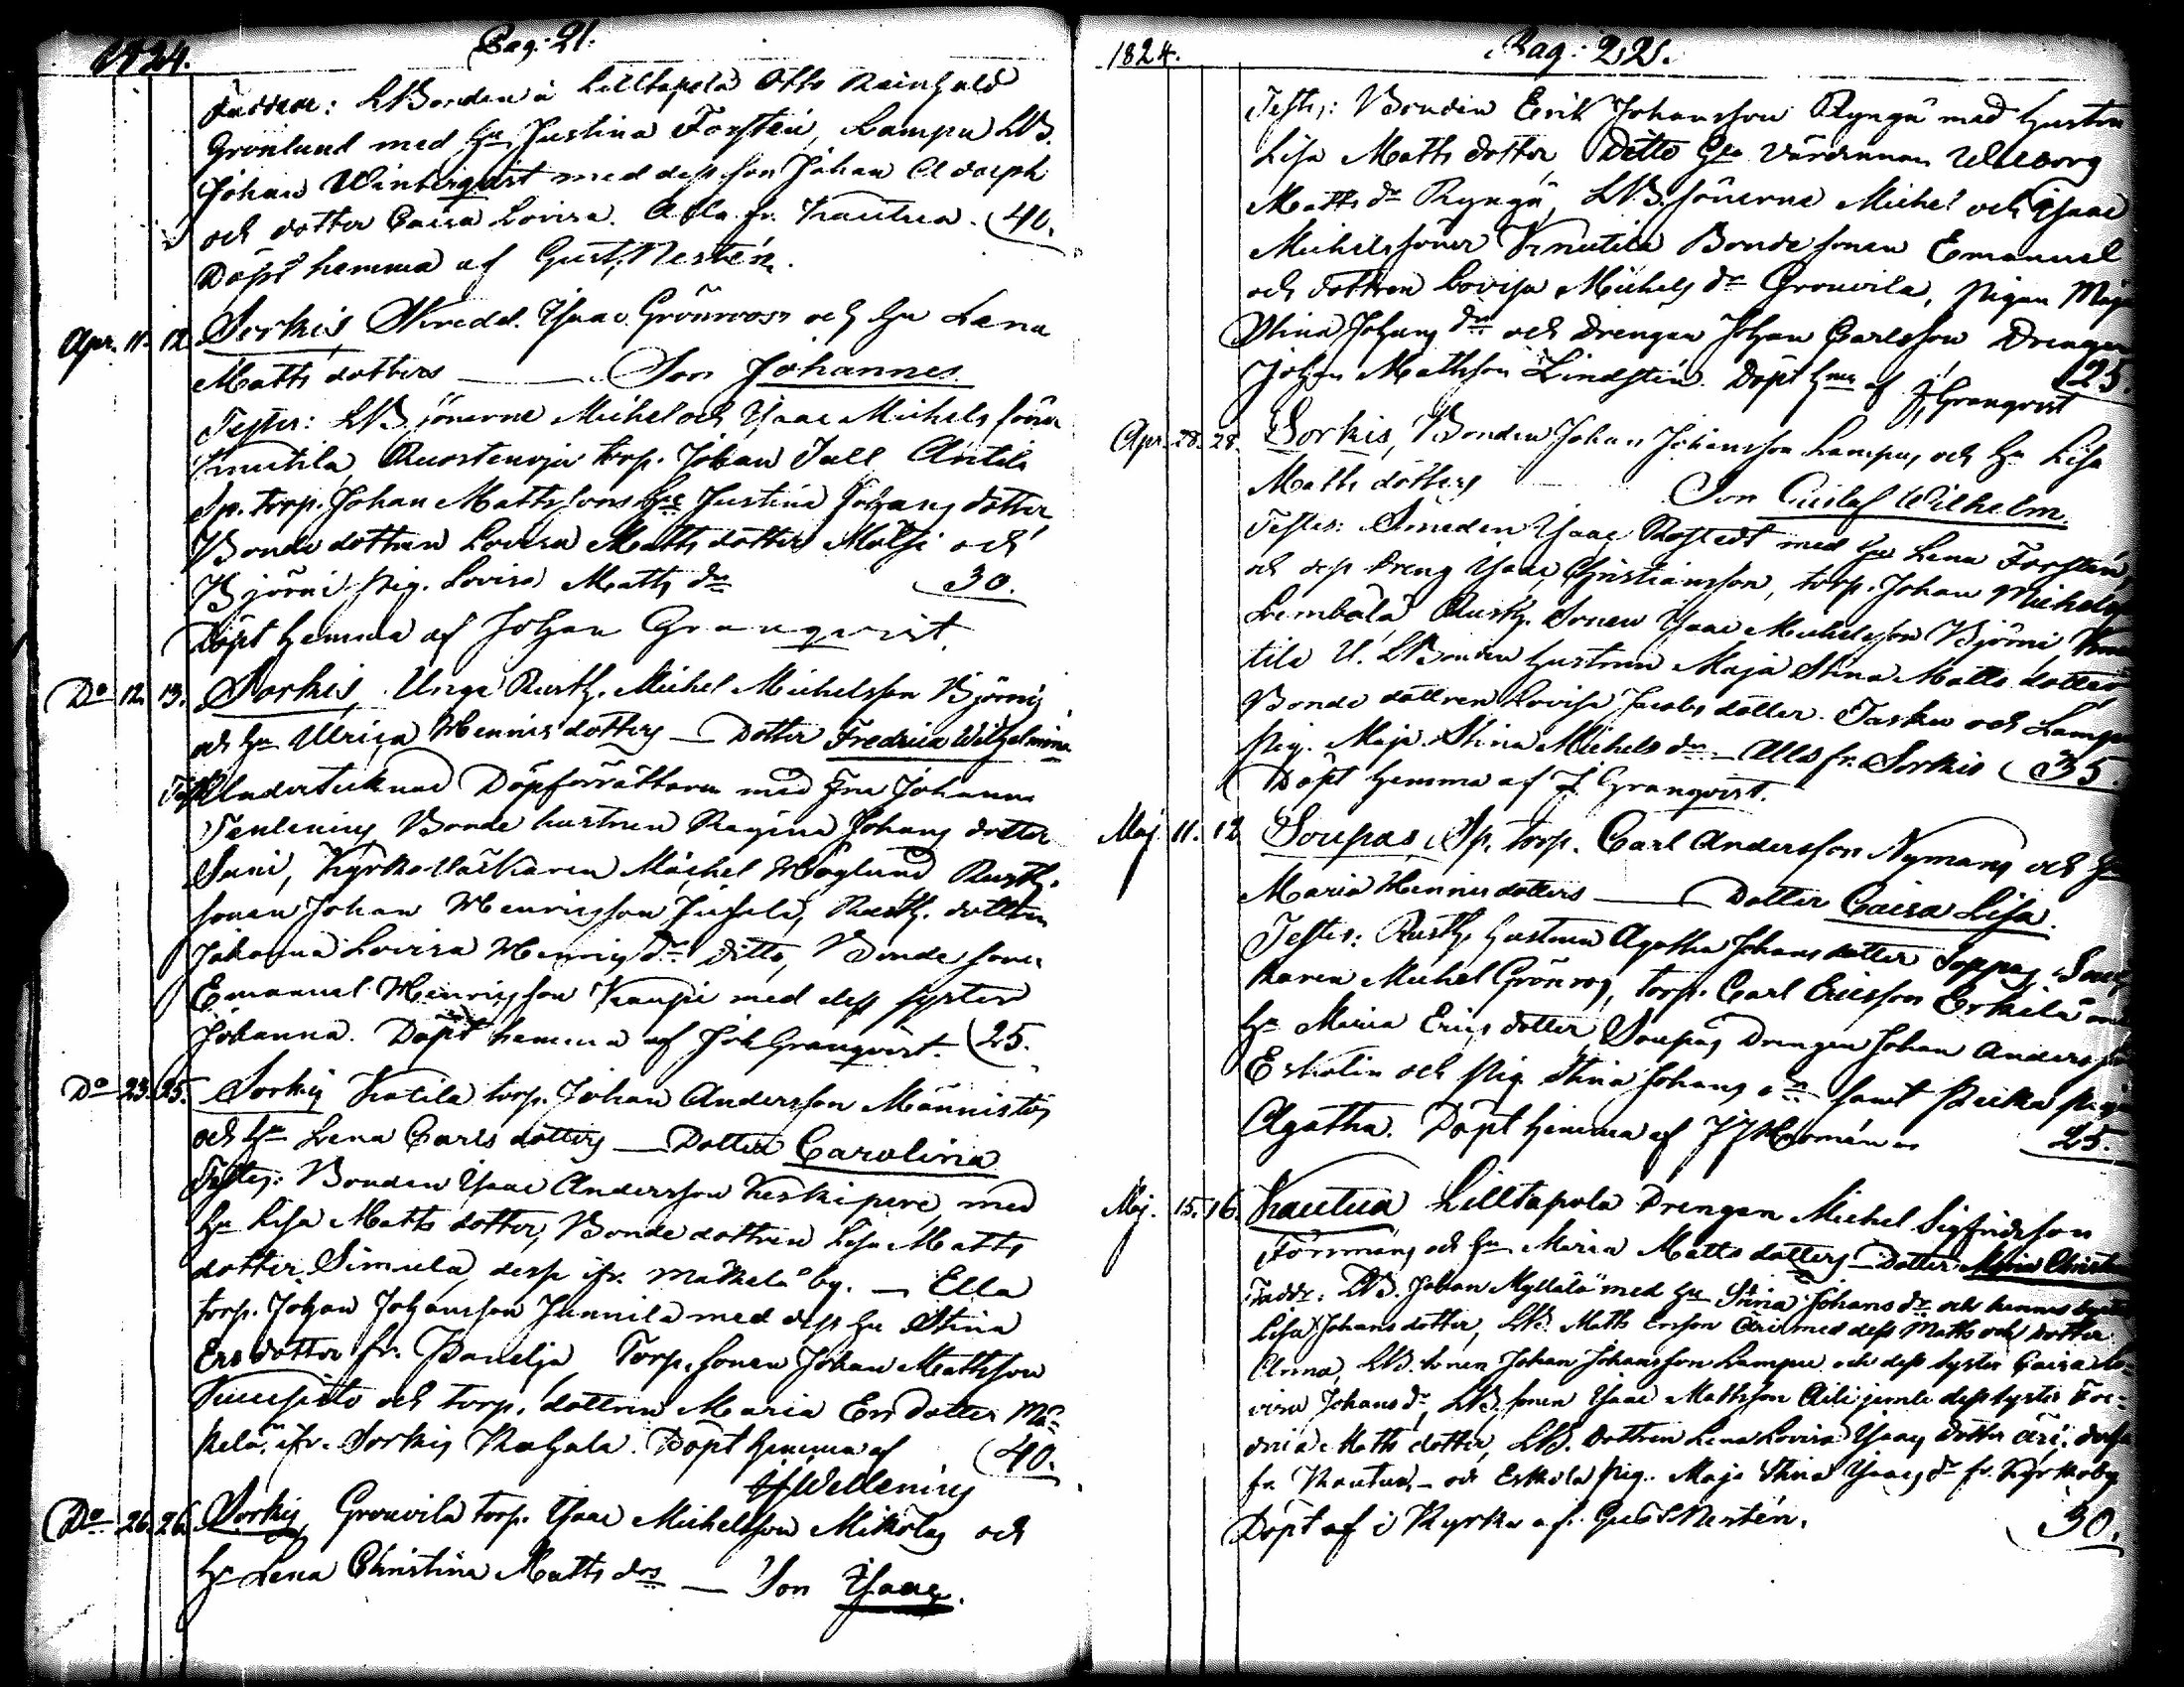 1824. Pag: 21.
Faddrar: LBonden å Lilltapola Otto Reinhold
Grönlund med hu Justina Forstén, Lampu LB.
Johan Winterqvist med dess son Johan Adolph
och dotter Caisa Lovisa. Alla fr. Kautua. 40.
Döpt hemma af Gust. Nestén.
Apr. 11. 12. Sorkis, Skredd. Isaac Grönroos och hu Lena
Matts dotters — Son Johannes
Testes: LB sönerne Michel och Isaac Michels söner
Knutila, torp. Johan Jall Anttila
Sp. torp. Johan Mattssons hu Justina Johans dotter
Bonde dottren Lovisa Matts dotter och
Björni pig. Lovisa Matts dr 30.
Döpt hemma af Johan Granqvist.
Do 12. 13. Sorkis, Unge Rusth. Michel Michelsson Björnis
och hu Ulrica Henricsdotters — Dotter Fredrica Wilhelmina
Test. Undertecknad Döpförrättaren med Fru Johanna
Bonde hustrun Regina Johans dotter
Kyrkoväktaren Michel Höglund Rusth.
sonen Johan Henricsson Rusth. dottren
Johanna Lovisa Henrics dr Ditto, Bonde sonen
Emanuel Henricsson Kauppi med dess syster
Johanna. Döpt hemma af Joh Granqvist. 25.
Do 23. 25. Sorkis Katila torp. Johan Andersson Männistös
och hu Lena Carls dotters — Dotter Carolina
Testes: Bonden Isaac Andersson Keskipere, med
hu Lisa Matts dotter, Bonde dottren Lisa Matts
dotter Simula, desse ifr. Mäkelä by. — Ella
torp. Johan Johansson Junnila med dess hu Stina
Ers dotter fr. Panelja, Torp. sonen Johan Mattsson
och torp. dottren Maria Ers dotter Mä-
kelä, ifr. Sorkis Döpt hemma af 40.
Wellenius
Do 26. 26. Sorkis, Grouvila torp. Isaac Michelsson Mikolas och
hu Lena Christina Matts drs — Son Isaac.
1824. Pag: 22.
Testes: Bonden Erik Johansson Ryngä med hustru
Lisa Matts dotter, Ditto Gla Värdinnan Walborg
Matts dr Ryngä, LB. sönerne Michel och Isaac
Michelssöner Knutila Bonde sonen Emanuel
och dottren Lovisa Michels dr Grouvila, Pigan Maja
Stina Johans dr och Drengen Johan Carlsson Drengen
Johan Mattsson Lindstén. Döpt hma af J. Granqvist 25.
Apr. 28. 28. Sorkis, Bonden Johan Johansson Lampus och hu Lisa
Matts dotters Son Gustaf Wilhelm.
Testes: Smeden Isaac Rostedt med hu Lena Forstén,
och dess Dreng Isaac Christiansson, torp. Johan Michelsson
Lembälä Rusth. Sonen Isaac Michelsson Björni Knu
tila U. LBonden hustrun Maja Stina Matts dotter
Bonde dottren Lovisa Jacobs dotter. Tasku och Lampu
Pig. Maja Stina Michels dr — Alla fr. Sorkis 35.
Döpt hemma af J. Granqvist.
Maj. 11. 12. Soupas, Sp. torp. Carl Andersson Nymans och hu
Maria Henricsdotters — Dotter Caisa Lisa.
Testes: Rusth. hustrun Agatha Johans dotter Soppas,
karen Michel Grönros, torp. Carl Ericsson Erkilä med
hu Maria Erics dotter, Soupas Drengen Johan Andersson
Eskolin och Pig. Stina Johans dr samt pigan
Agatha. Döpt hemma af 25.
Maj. 15. 16. Kautua Lilltapola Drengen Michel Sigfridsson
Törrmäns och hu Maria Matts dotters — Dotter Maria Christina
Faddr: LB. Johan Myllälä med hu Stina Johans dr och hennes syster
Lisa Johans dotter, LB. Matts Ersson Äri med dess Matts och dotter
Anna, LB. sonen Johan Johansson Lampu och dess syster Caisa Lo-
visa Johans dr, LB. sonen Isaac Mattsson jemte dess syster Fre-
drica Matts dotter, LB. Dottren Lena Lovisa Isaacs dotter Äri. desse
fr. Kautua, — och Eskola pig. Maja Stina Isaacs dr fr. Kyrkoby
Döpt af i Kyrko af Gust Nestén. 30.